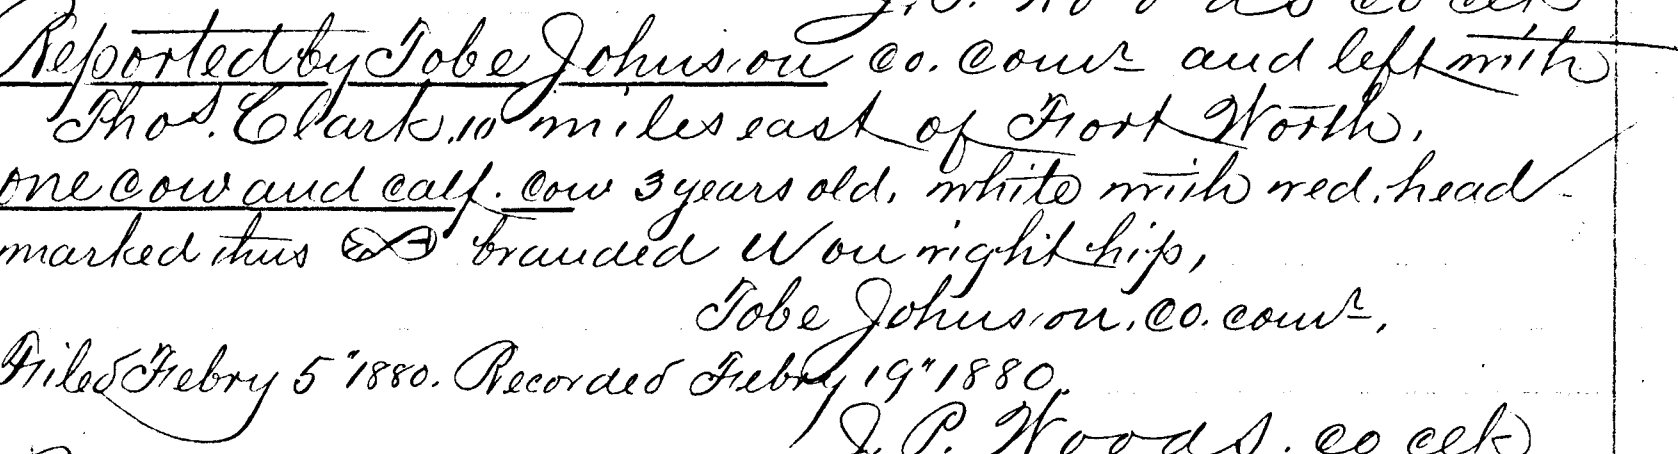 J. P. Woods co clk
Reported by Tobe Johnson co. comr and left with
Thos. Clark, 10 miles east of Fort Worth,
one cow and calf. cow 3 years old, white with red head
marked thus branded W on right hip,
Tobe Johnson, co. comr.
Filed Febry 5" 1880. Recorded Febry 19" 1880.
J. P. Woods. co clk